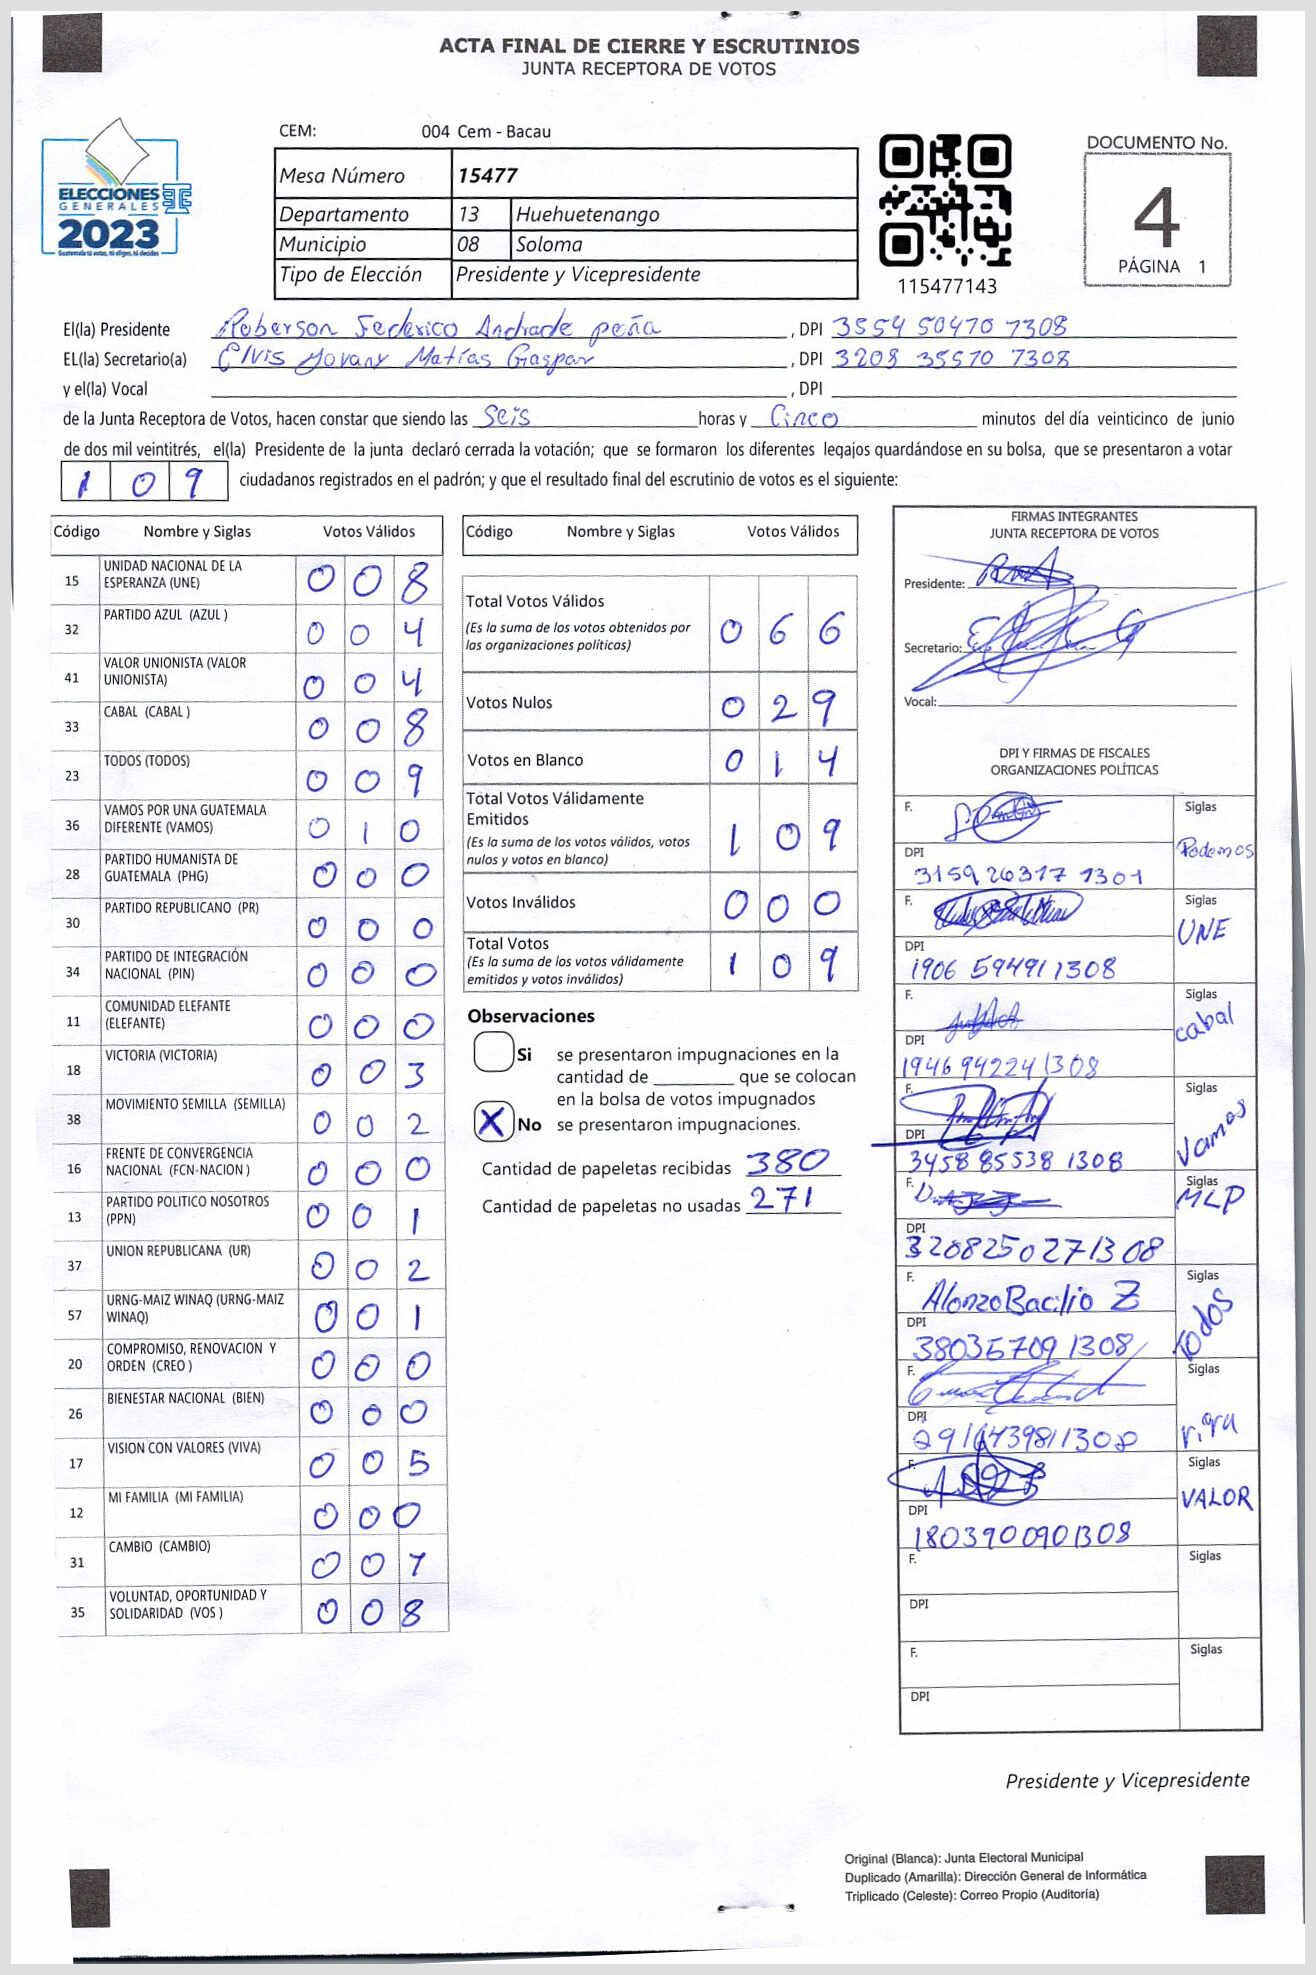 ACTA FINAL DE CIERRE Y ESCRUTINIOS
JUNTA RECEPTORA DE VOTOS
ELECCIONES
GENERALES
2023
CEM: 004 Cem - Bacau
Mesa Número 15477
Departamento 13 Huehuetenango
Municipio 08 Soloma
Tipo de Elección Presidente y Vicepresidente
115477143
DOCUMENTO No.
4
PÁGINA 1
El(la) Presidente Roberson Federico Andrade peña, DPI 3554 50470 1308
EL(la) Secretario(a) Elvis Yovany Matías Gaspar, DPI 3208 35570 1308
y el(la) Vocal , DPI
de la Junta Receptora de Votos, hacen constar que siendo las Seis horas y Cinco minutos del día veinticinco de junio
de dos mil veintitrés, el(la) Presidente de la junta declaró cerrada la votación; que se formaron los diferentes legajos guardándose en su bolsa, que se presentaron a votar
109 ciudadanos registrados en el padrón; y que el resultado final del escrutinio de votos es el siguiente:
Código Nombre y Siglas Votos Válidos
15 UNIDAD NACIONAL DE LA ESPERANZA (UNE) 008
32 PARTIDO AZUL (AZUL ) 004
41 VALOR UNIONISTA (VALOR UNIONISTA) 004
33 CABAL (CABAL ) 008
23 TODOS (TODOS) 009
36 VAMOS POR UNA GUATEMALA DIFERENTE (VAMOS) 010
28 PARTIDO HUMANISTA DE GUATEMALA (PHG) 000
30 PARTIDO REPUBLICANO (PR) 000
34 PARTIDO DE INTEGRACIÓN NACIONAL (PIN) 000
11 COMUNIDAD ELEFANTE (ELEFANTE) 000
18 VICTORIA (VICTORIA) 003
38 MOVIMIENTO SEMILLA (SEMILLA) 002
16 FRENTE DE CONVERGENCIA NACIONAL (FCN-NACION ) 000
13 PARTIDO POLITICO NOSOTROS (PPN) 001
37 UNION REPUBLICANA (UR) 002
57 URNG-MAIZ WINAQ (URNG-MAIZ WINAQ) 001
20 COMPROMISO, RENOVACION Y ORDEN (CREO ) 000
26 BIENESTAR NACIONAL (BIEN) 000
17 VISION CON VALORES (VIVA) 005
12 MI FAMILIA (MI FAMILIA) 000
31 CAMBIO (CAMBIO) 007
35 VOLUNTAD, OPORTUNIDAD Y SOLIDARIDAD (VOS ) 008
Código Nombre y Siglas Votos Válidos
Total Votos Válidos 066
(Es la suma de los votos obtenidos por
las organizaciones políticas)
Votos Nulos 029
Votos en Blanco 014
Total Votos Válidamente
Emitidos 109
(Es la suma de los votos válidos, votos
nulos y votos en blanco)
Votos Inválidos 000
Total Votos 109
(Es la suma de los votos válidamente
emitidos y votos inválidos)
Observaciones
Si se presentaron impugnaciones en la
cantidad de ________ que se colocan
en la bolsa de votos impugnados
X No se presentaron impugnaciones.
Cantidad de papeletas recibidas 380
Cantidad de papeletas no usadas 271
FIRMAS INTEGRANTES
JUNTA RECEPTORA DE VOTOS
Presidente:
Secretario:
Vocal:
DPI Y FIRMAS DE FISCALES
ORGANIZACIONES POLÍTICAS
F. Siglas
Podemos
DPI
3159 26317 1301
F. Siglas
UNE
DPI
1906 59491 1308
F. Siglas
cabal
DPI
1946 94224 1308
F. Siglas
Vamos
DPI
3458 85538 1308
F. Siglas
MLP
DPI
3208250271308
F. Siglas
Alonzo Bacilio Z
Todos
DPI
380357091308
F. Siglas
DPI
2916439811308
F. Siglas
VALOR
DPI
1803900901308
F. Siglas
DPI
F. Siglas
DPI
Presidente y Vicepresidente
Original (Blanca): Junta Electoral Municipal
Duplicado (Amarilla): Dirección General de Informática
Triplicado (Celeste): Correo Propio (Auditoría)